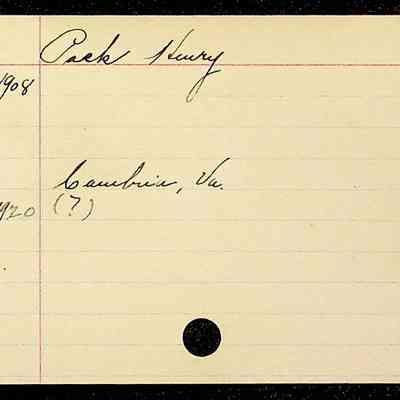 Pack Henry
1908
Cambria, Va.
1920 (?)